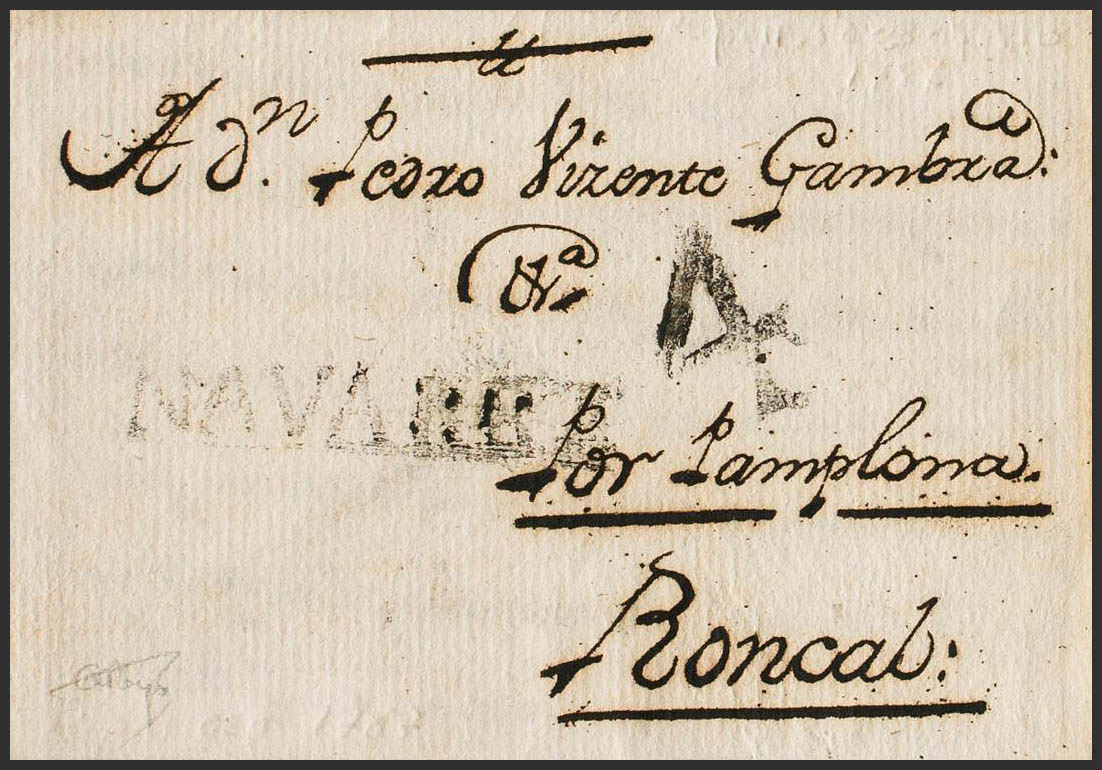 A d.ⁿ Pedro Vizente Gambra:
&.ª
4
NAVARRE
Por Pamplona.
Roncal: